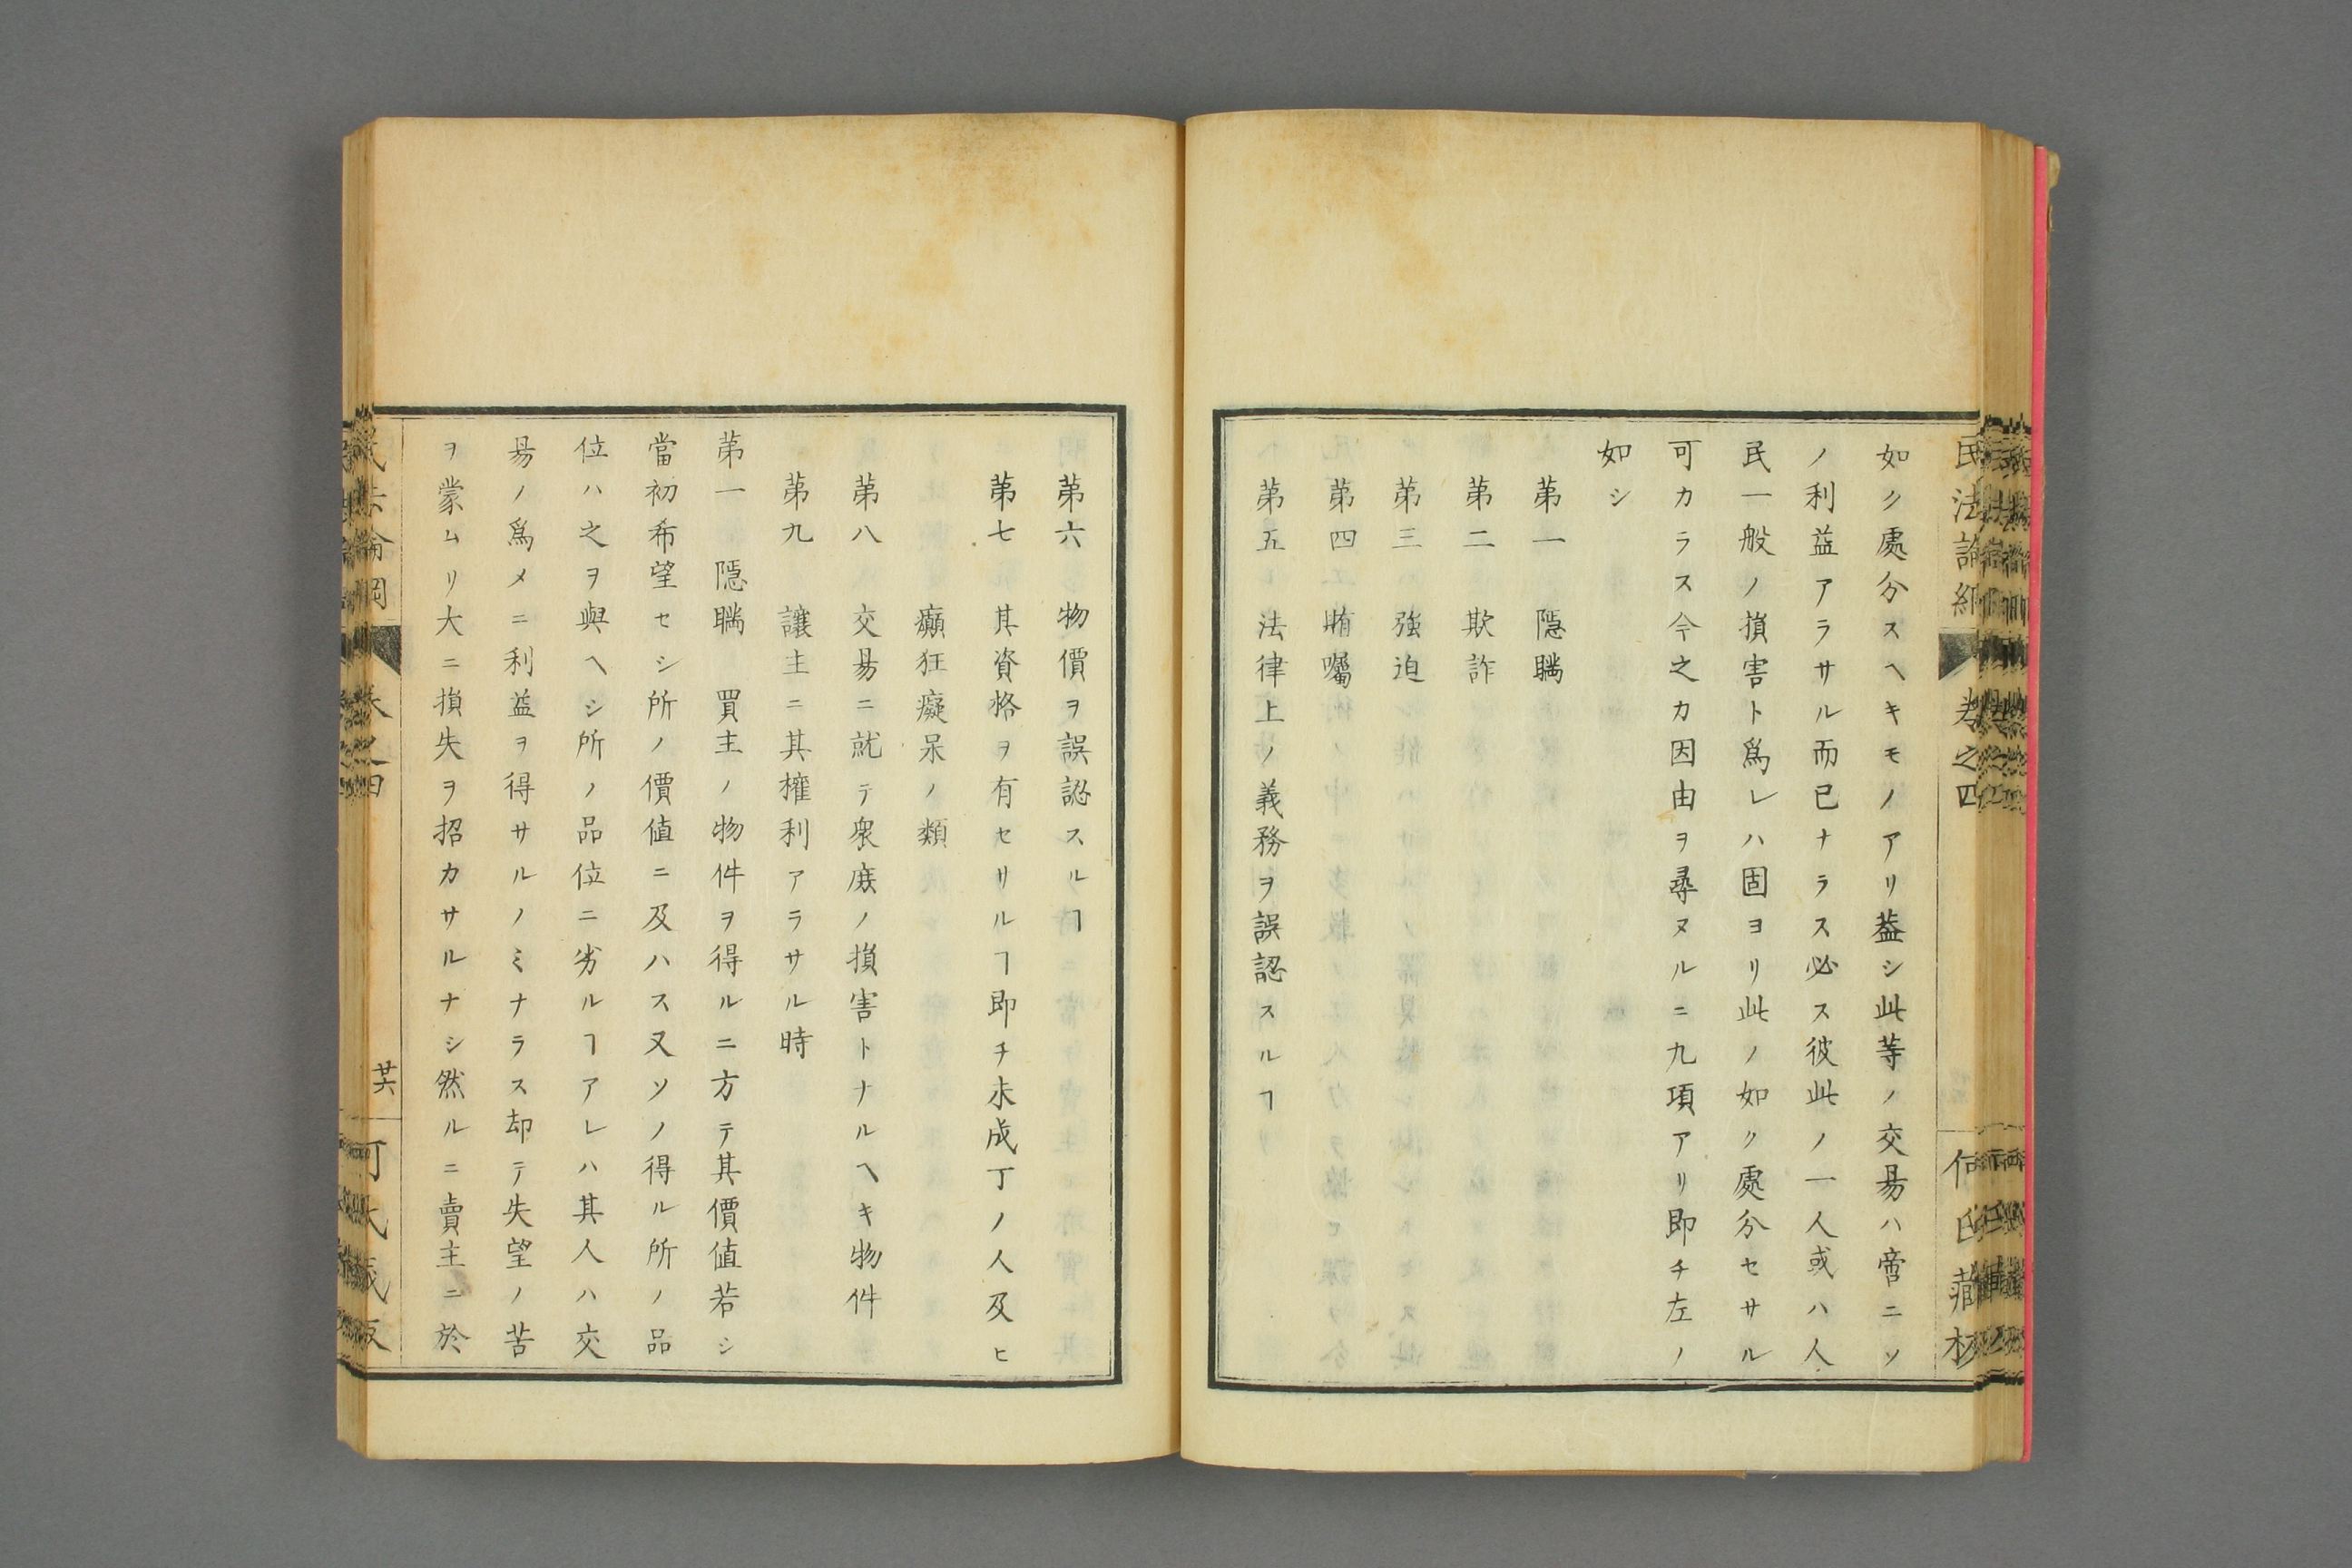 民法論綱 卷之四 何氏藏板
如ク處分スヘキモノアリ葢シ此等ノ交易ハ啻ニソ
ノ利益アラサル而已ナラス必ス彼此ノ一人或ハ人
民一般ノ損害ト爲レハ固ヨリ此ノ如ク處分セサル
可カラス今之カ因由ヲ尋ヌルニ九項アリ即チ左ノ
如シ
第一 隱瞞
第二 欺詐
第三 強迫
第四 賄囑
第五 法律上ノ義務ヲ誤認スルヿ
第六 物價ヲ誤認スルヿ
第七 其資格ヲ有セサルヿ即チ未成丁ノ人及ヒ
癲狂癡呆ノ類
第八 交易ニ就テ衆庻ノ損害トナルヘキ物件
第九 讓主ニ其權利アラサル時
第一 隱瞞 買主ノ物件ヲ得ルニ方テ其價値若シ
當初希望セシ所ノ價値ニ及ハス又ソノ得ル所ノ品
位ハ之ヲ與ヘシ所ノ品位ニ劣ルヿアレハ其人ハ交
易ノ爲メニ利益ヲ得サルノミナラス却テ失望ノ苦
ヲ蒙ムリ大ニ損失ヲ招カサルナシ然ルニ賣主ニ於
民法論綱 卷之四 廿六 何氏藏板